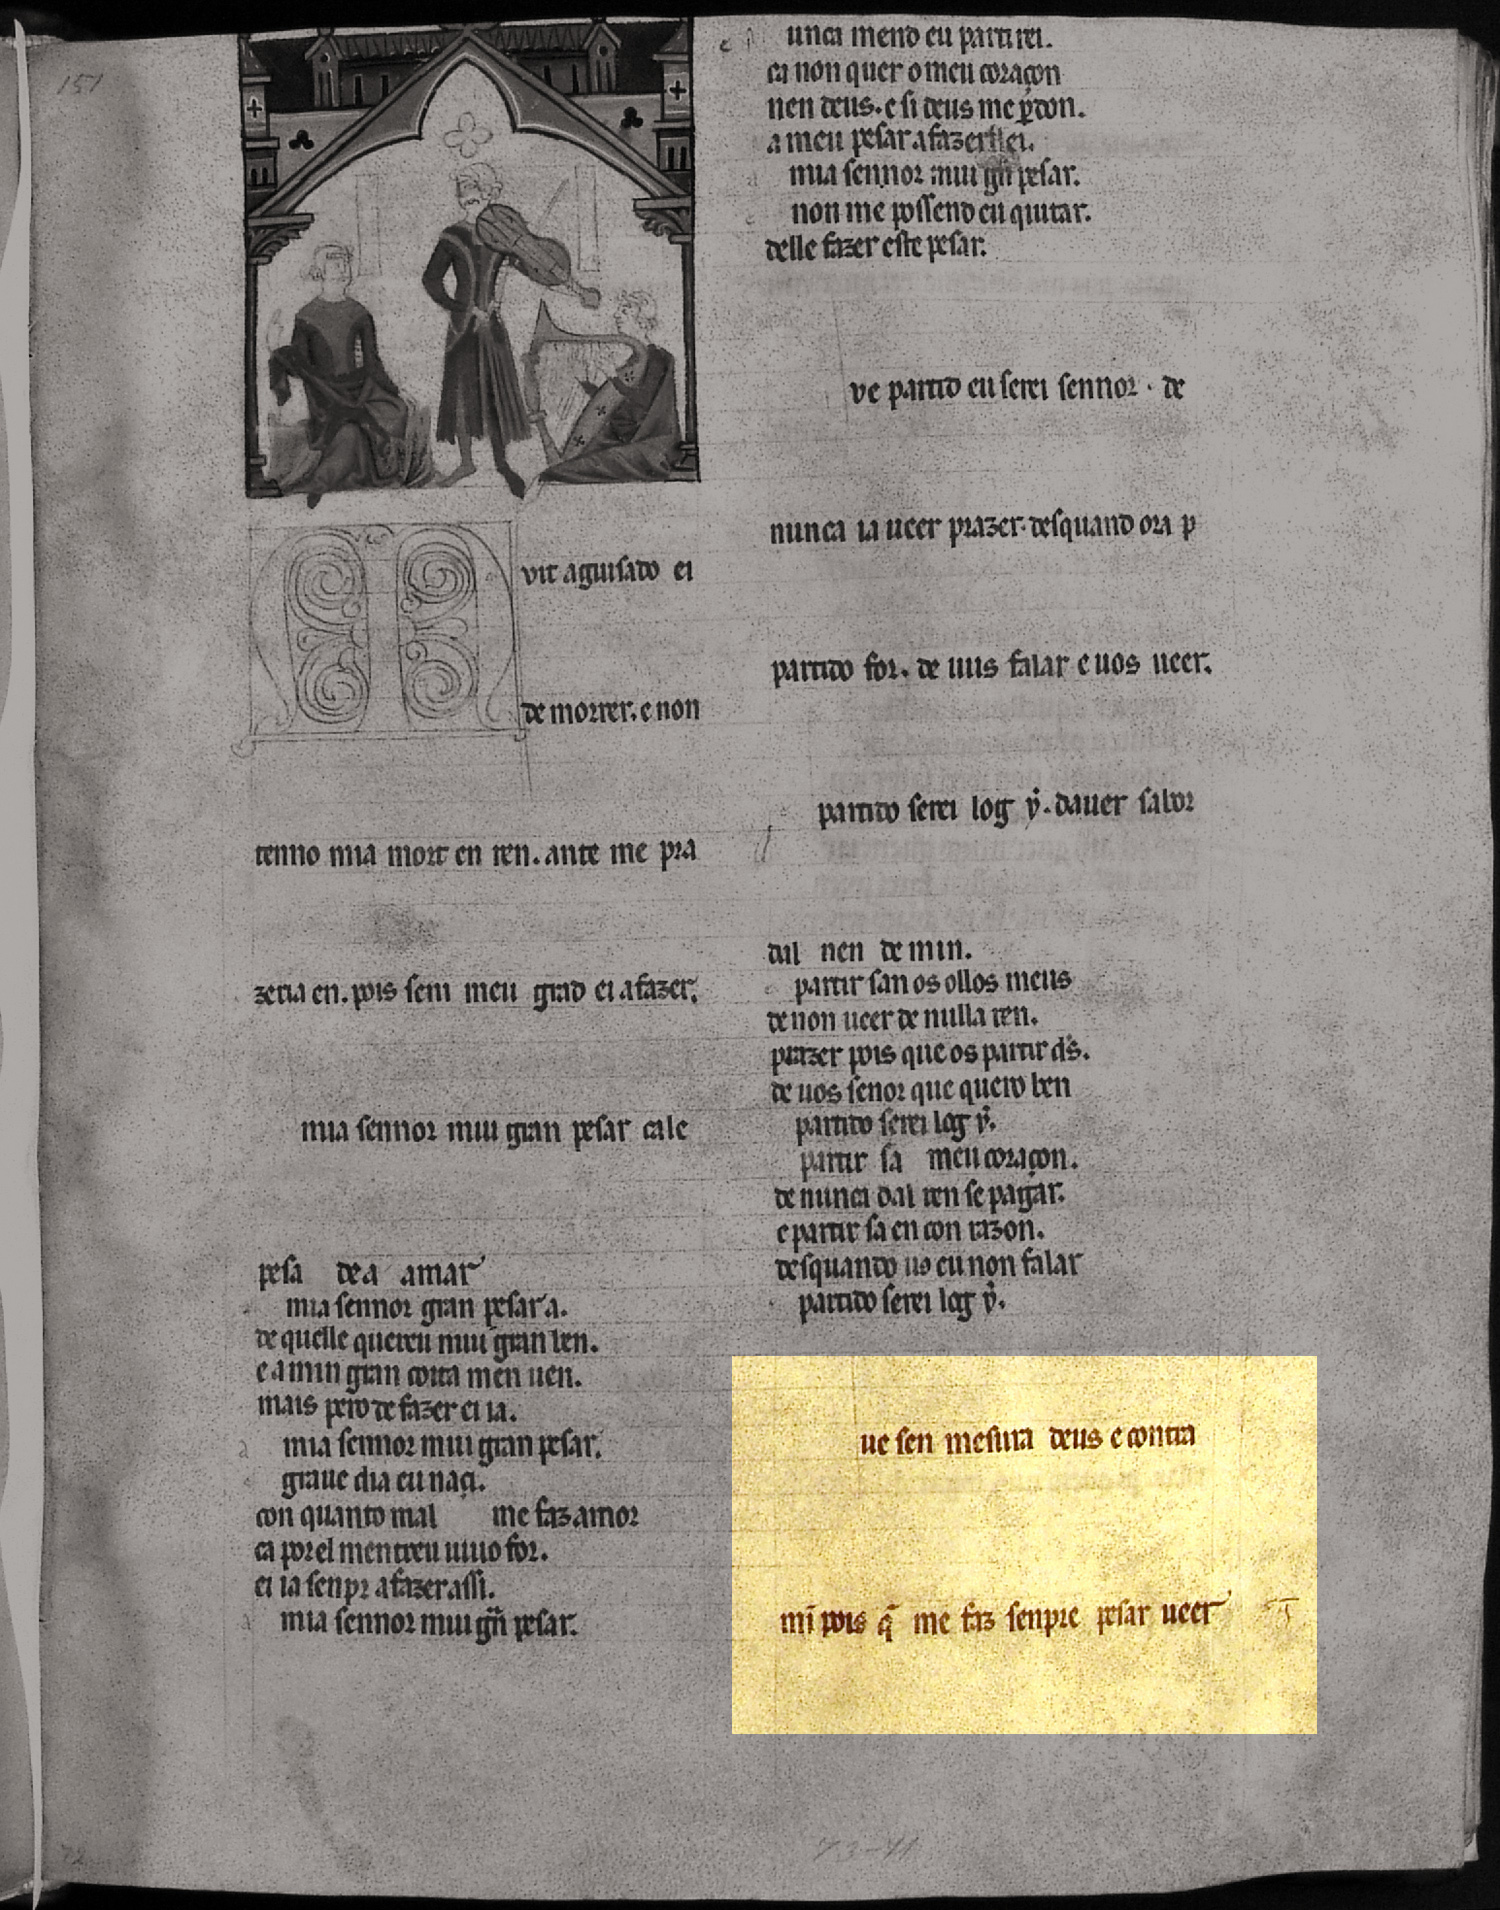 151
vit aguisado ei
de morrer. e non
tenno mia mort en ren. ante me pra
zeria en. pois sem meu grad ei a fazer.
mia sennor mui gran pesar cale
pesa de a amar
mia sennor gran pesar a.
de quelle quereu mui gran ben.
e a min gran coita men uen.
mais pero de fazer ei ia.
mia sennor mui gran pesar.
graue dia eu naçi.
con quanto mal me faz amor
ca por el mentreu uiuo for.
ei ia senpr a fazer assi.
mia sennor mui gn̄ pesar.
unca mend eu partirei.
ca non quer o meu coraçon
nen deus. e si deus me ꝑdon.
a meu pesar a fazerllei.
mia sennor mui gn̄ pesar.
non me possend eu quitar.
delle fazer este pesar.
ve partid eu serei sennor. de
nunca ia ueer prazer. desquand ora p
partido for. de uus falar e uos ueer.
partido serei log y. dauer sabor
dal nen de min.
partir san os ollos meus
de non ueer de nulla ren.
prazer pois que os partir ds̄.
de uos senor que quero ben
partido serei log y.
partir sa meu coraçon.
de nunca dal ren se pagar.
e partir sa en con razon.
desquando uo eu non falar
partido serei log y.
ue sen mesura deus e contra
mī pois q̄ me faz senpre pesar ueer
72